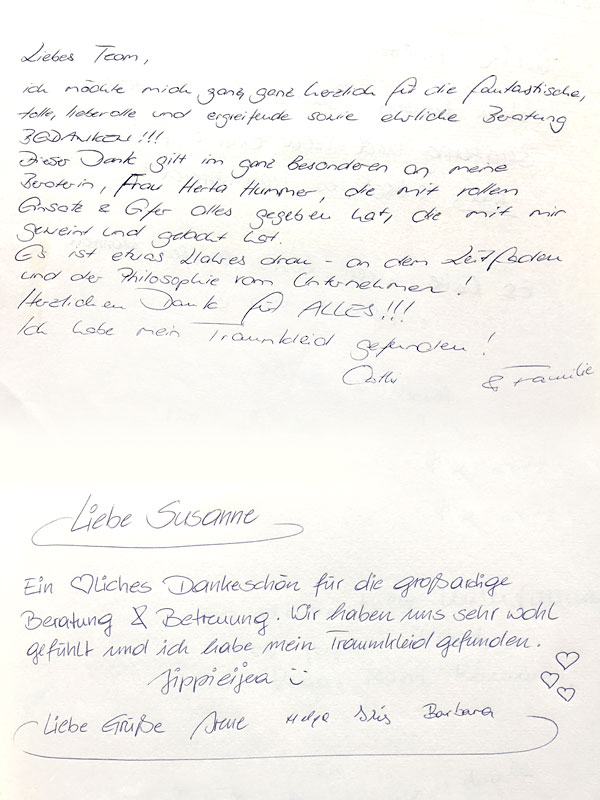 Liebes Team,
ich möchte mich ganz, ganz herzlich für die fantastische,
tolle, liebevolle und ergreifende sowie ehrliche Beratung
BEDANKEN!!!
Dieser Dank gilt im ganz Besonderen an meine
Beraterin, Frau Herta Hummer, die mit vollem
Einsatz & Eifer alles gegeben hat, die mit mir
geweint und gelacht hat.
Es ist etwas Wahres dran - an dem Leitfaden
und der Philosophie vom Unternehmen!
Herzlichen Dank für ALLES!!!
Ich habe mein Traumkleid gefunden!
& Familie
Liebe Susanne
Ein ♡liches Dankeschön für die großardige
Beratung & Betreuung. Wir haben uns sehr wohl
gefühlt und ich habe mein Traumkleid gefunden.
Jippieijea :)
Liebe Grüße Helga Iris Barbara